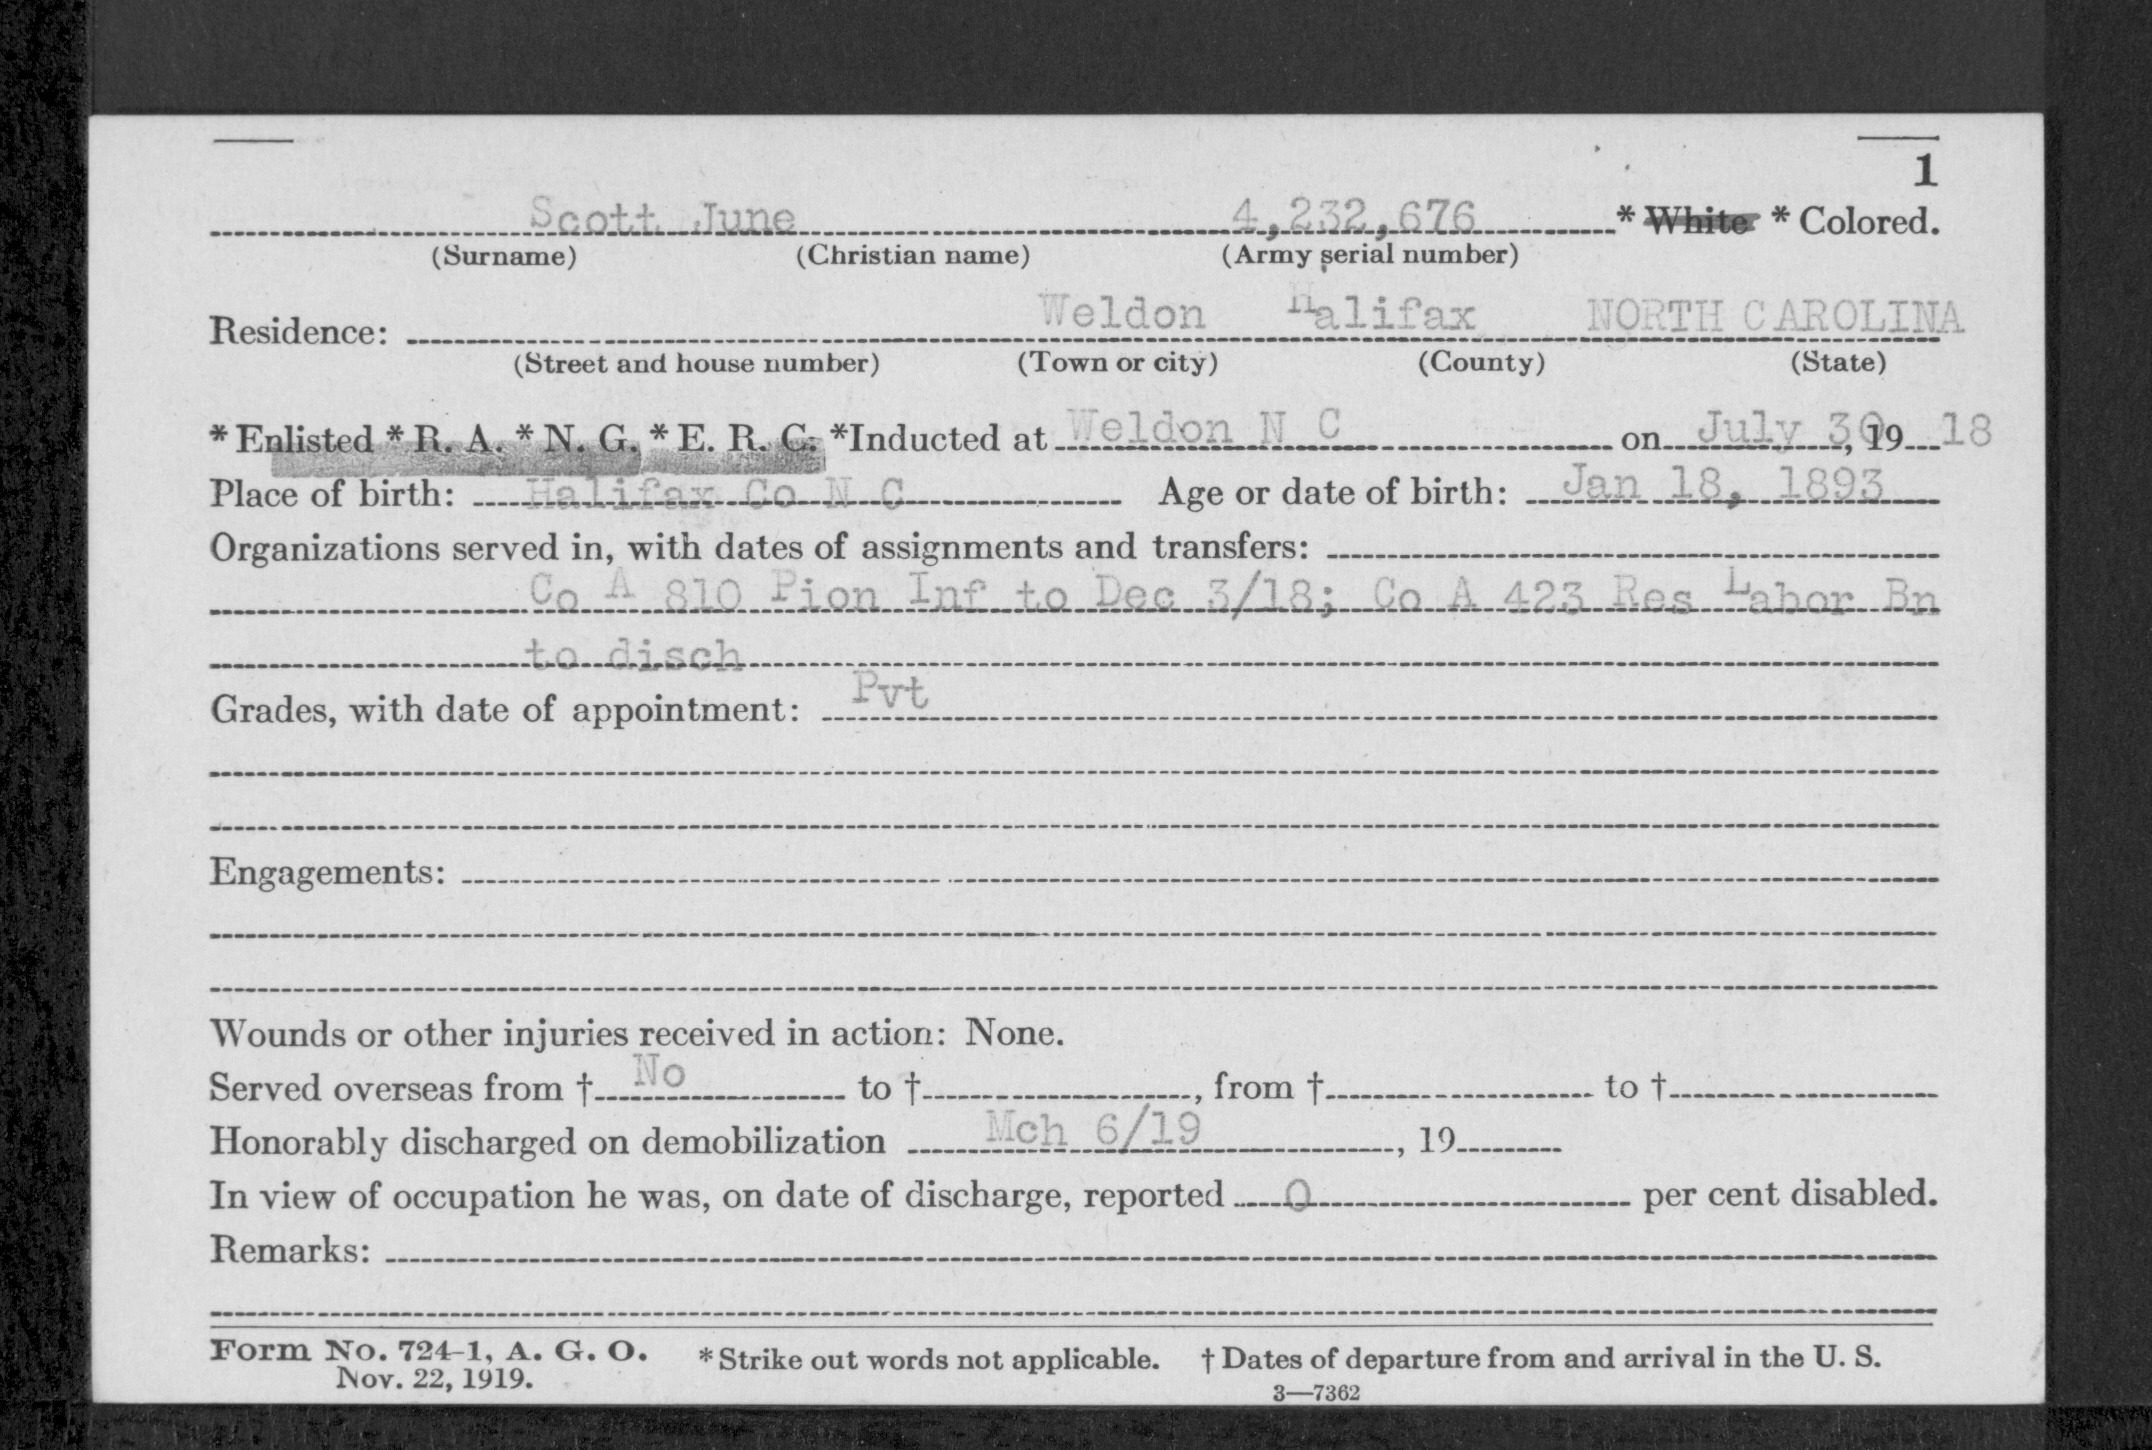 1
Scott June 4,232,676 * White * Colored.
(Surname) (Christian name) (Army serial number)
Residence: Weldon Halifax NORTH CAROLINA
(Street and house number) (Town or city) (County) (State)
* Enlisted * R. A. * N. G. * E. R. C. *Inducted at Weldon N C on July 30, 19 18
Place of birth: Halifax Co N C Age or date of birth: Jan 18, 1893
Organizations served in, with dates of assignments and transfers:
Co A 810 Pion Inf to Dec 3/18; Co A 423 Res Labor Bn
to disch
Grades, with date of appointment: Pvt
Engagements:
Wounds or other injuries received in action: None.
Served overseas from † No to †, from † to †
Honorably discharged on demobilization Mch 6/19, 19
In view of occupation he was, on date of discharge, reported 0 per cent disabled.
Remarks:
Form No. 724-1, A. G. O. * Strike out words not applicable. † Dates of departure from and arrival in the U. S.
Nov. 22, 1919.
3—7362